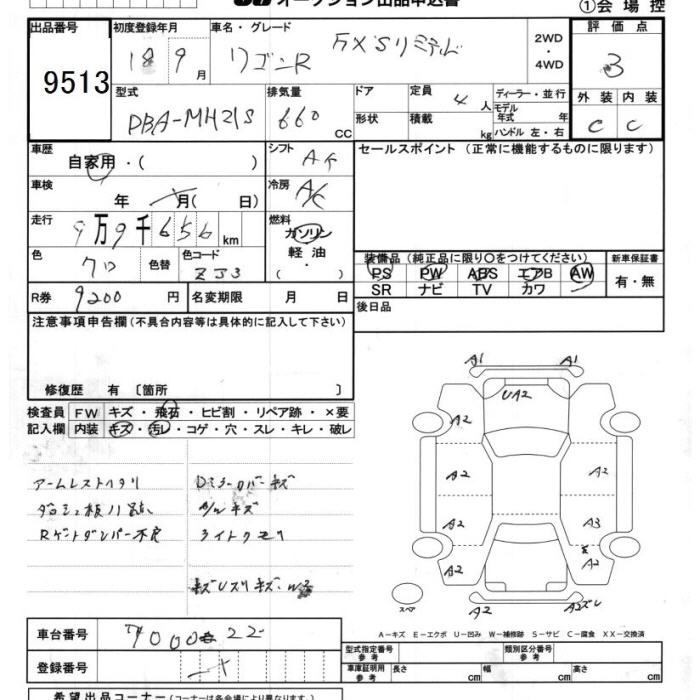 オークション出品申込書
①会場控
出品番号
9513
初度登録年月
18 9月
車名・グレード
ワゴンR FXSリミテッド
2WD
・
4WD
評価点
3
型式
DBA-MH21S
排気量
660 CC
ドア
定員 4人
ディーラー・並行
モデル年式 年
形状
積載 kg
ハンドル 左・右
外装 内装
C C
車歴
自家用・( )
シフト AT
セールスポイント(正常に機能するものに限ります)
車検
年 月( 日)
冷房 A/C
走行
9万9千656km
燃料
ガソリン
軽油
( )
色
クロ
色替
色コード
ZJ3
装備品(純正品に限り○をつけてください)
新車保証書
PS PW ABS エアB AW
有・無
SR ナビ TV カワ
R券 9200円
名変期限 月 日
後日品
注意事項申告欄(不具合内容等は具体的に記入して下さい)
修復歴 有 〔箇所 〕
検査員 FW キズ・飛石・ヒビ割・リペア跡・×要
記入欄 内装 キズ・汚レ・コゲ・穴・スレ・キレ・破レ
アームレストヘタリ
Rゲートダンパー不良
ライトクモリ
A1 A1
UA2
A2
A2 A2
A2 A3
A2 A2
A2 A2ズレ
スペア
A-キズ E-エクボ U-凹み W-補修跡 S-サビ C-腐食 XX-交換済
車台番号
登録番号
型式指定番号 参考
類別区分番号 参考
車庫証明用 参考
長さ cm 幅 cm 高さ cm
希望出品コーナー(コーナーは各会場により異なります)